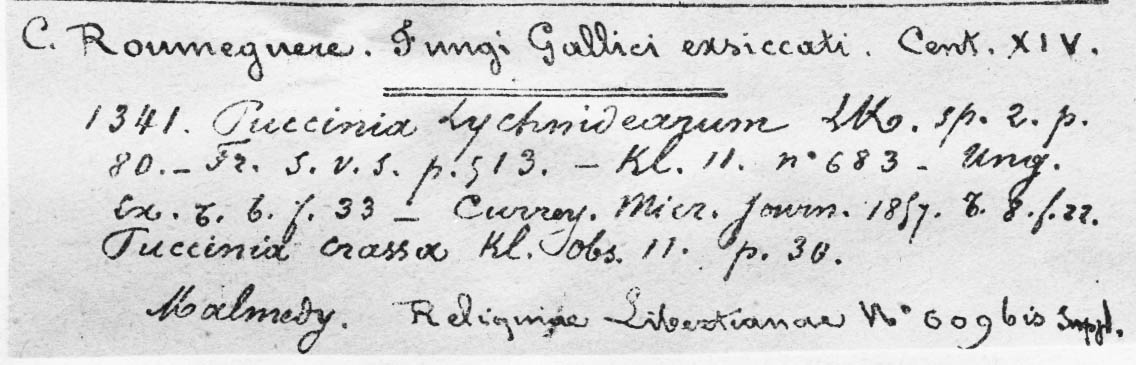 C. Roumeguere. Fungi Gallici exsiccati. Cent. XIV.
1341. Puccinia Lychnidearum LK. sp. 2. p.
80. - Fr. S. v. S. p. 513. - Kl. 11. n° 683 - Ung.
Ex. t. 6. f. 33 - Currey. Micr. Journ. 1857. t. 8. f. 22.
Puccinia crassa Kl. Obs. 11. p. 30.
Malmedy. Reliquiae Libertianae N° 609 bis Suppl.